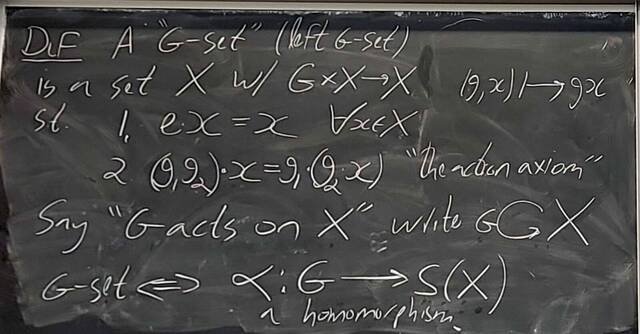 DEF A "G-set" (left G-set)
is a set X w/ G×X→X (g,x)↦gx
st. 1, e·x=x ∀x∈X
2 (g₁g₂)·x=g₁·(g₂·x) "the action axiom"
Say "G acts on X" write G↻X
G-set ⟺ α:G⟶S(X)
a homomorphism